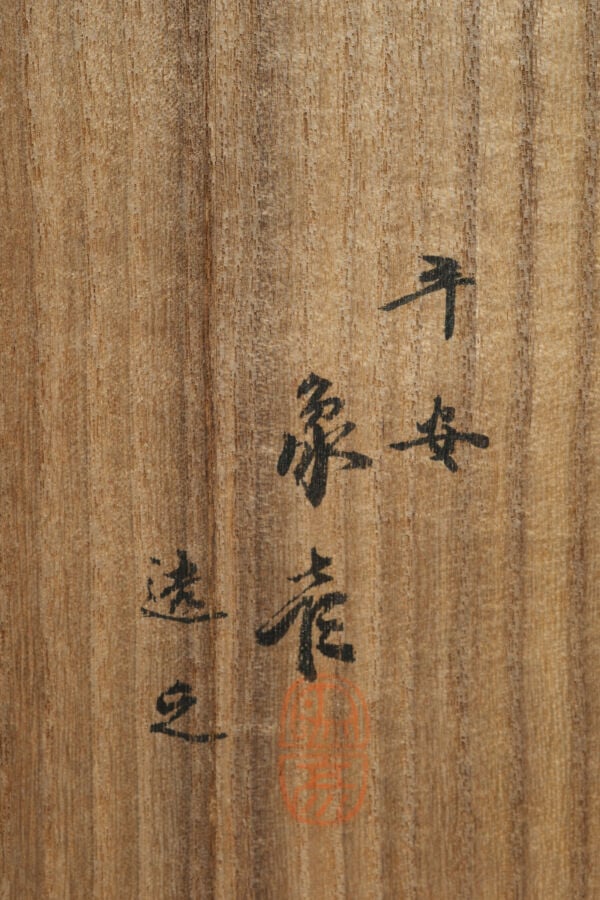 平安
象彦
造之